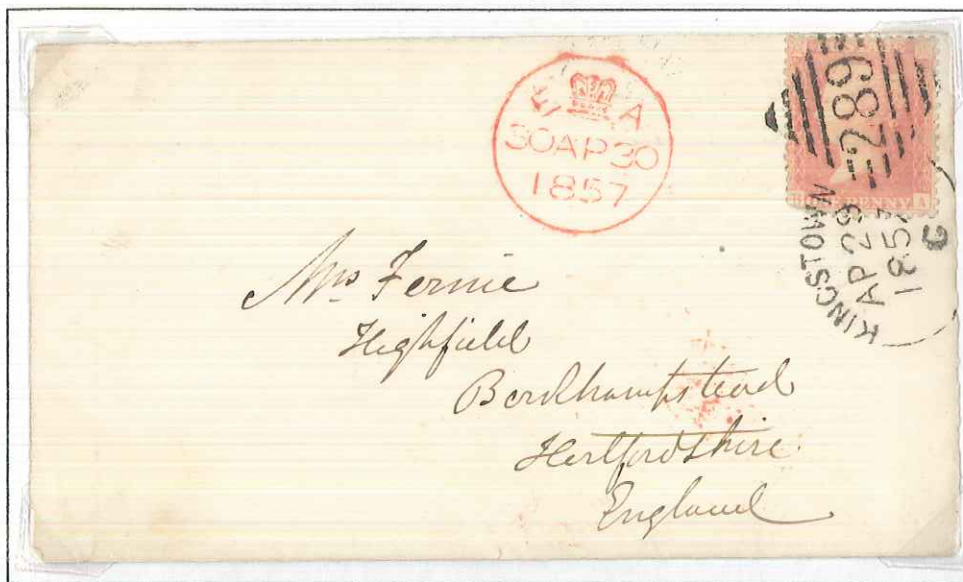 E A
30AP30
1857
289
B PENNY A
KINGSTOWN
AP 29
1857
Mrs Fernie
Highfield
Berkhampstead
Hertfordshire
England